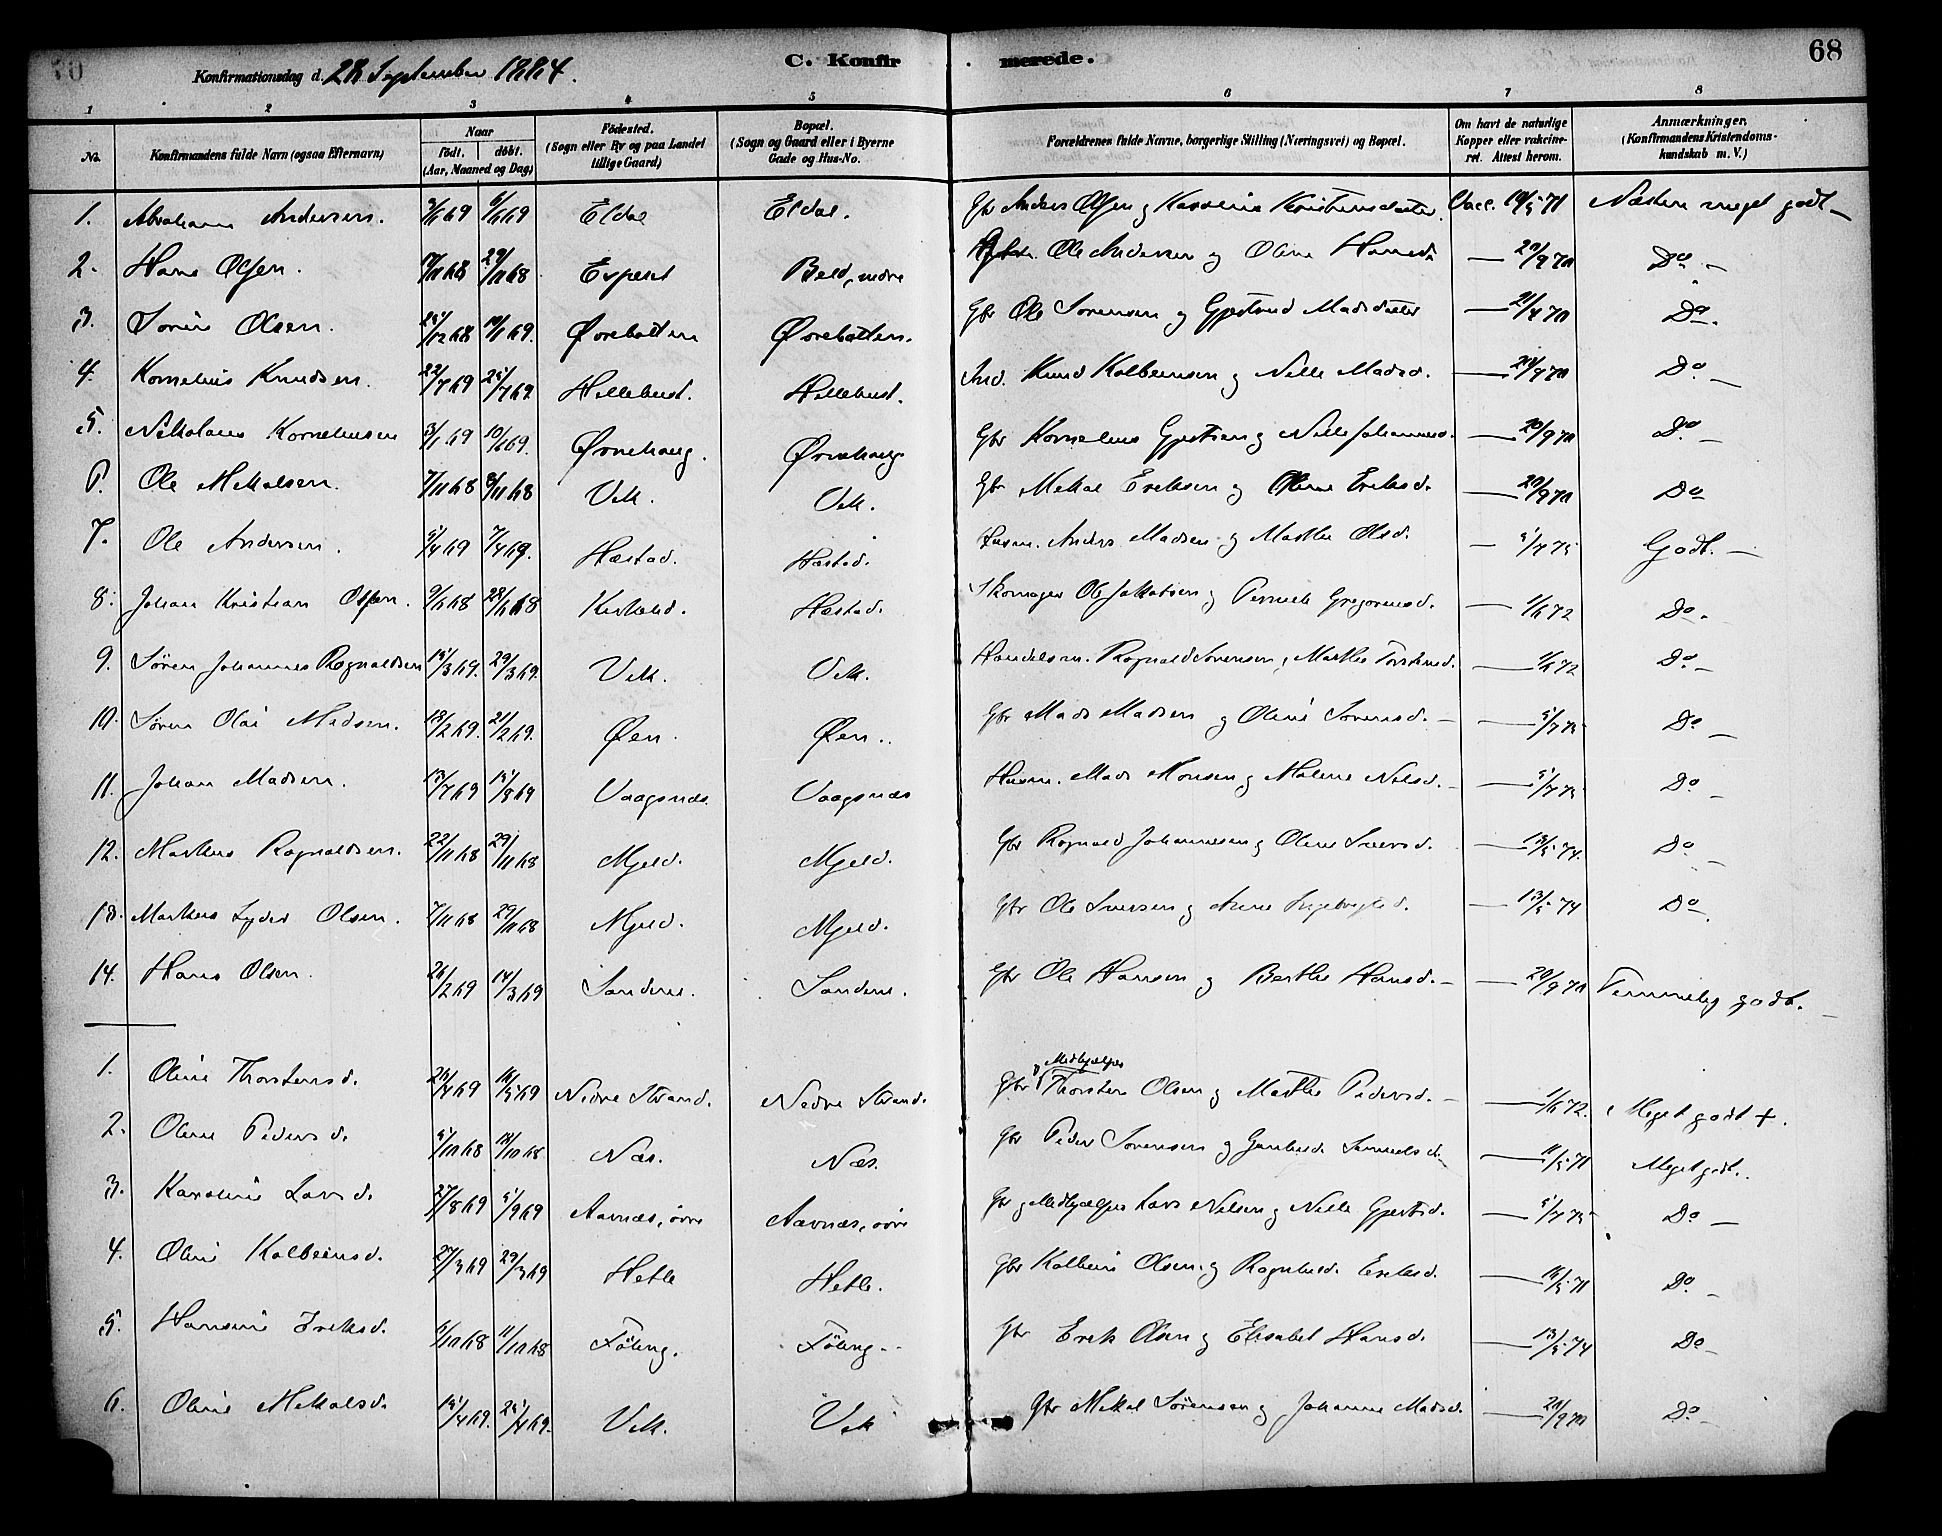 Konfirmationsdag d. 28 September 1884. C. Konfirmerede. 68
1 2 3 4 5 6 7 8
No. Konfirmandens fulde Navn (ogsaa Efternavn) Naar født, døbt. (Aar, Maaned og Dag) Fødested. (Sogn eller By og paa Landet tillige Gaard) Bopæl. (Sogn og Gaard eller i Byerne Gade og Hus-No. Forældrenes fulde Navne, borgerlige Stilling (Næringsvei) og Bopæl. Om havt de naturlige Kopper eller vakcineret. Attest herom. Anmærkninger. (Konfirmandens Kristendomskundskab m. V.)
1. Abraham Andersen. 6/6 69 Eldal Eldal. Gbr Anders Olsen og Karoline Kristensdatter. Vacc. 19/5 71 Næsten meget godt —
2. Hans Olsen. 7/11 68 29/11 68 Espeset Beld, indre Ole Andersen og Oline Hansd. — 20/9 70 Do —
3. Sørin Olsen. 25/12 68 10/1 69. Ørebotten Ørebotten. Gbr Ole Sørensen og Gjertrud Madsdatter — 21/4 70 Do.
4. Kornelius Knudsen. 22/7 69 25/7 69 Hellebust. Hellebust. Ind. Knud Kolbeinsen og Nille Madsd. — 20/9 70 Do —
5. Nikolaus Korneliusen 3/1 69 10/1 69. Ørnehaug. Ørnehaug. Gbr Kornelius Gjertsen og Nille Johannesd. — 20/9 70 Do —
6. Ole Mikalsen. 7/11 68 8/11 68 Vik. Vik. Gbr Mikal Eriksen og Oline Eriksd. — 20/9 70 Do
7. Ole Andersen. 5/4 69 7/4 69. Hæstad. Hæstad. Husm. Anders Madsen og Marthe Olsd. — 5/7 75 Godt. —
8. Johan Kristian Olsen. 9/6 68 28/6 68 Kirkelid. Hæstad. Skomager Ole Jakobsen og Pernele Gregoriusd. — 1/6 72 Do.
9. Søren Johannes Ragnaldsen 15/3 69. 29/3 69. Vik. Vik. Handelsm. Ragnald Sørensen, Marthe Torstensd. — 1/6 72 Do —
10. Søren Olai Madsen. 18/2 69. 21/2 69. Øen. Øen. Gbr Mads Madsen og Oline Sørensd. — 5/7 75 Do —
11. Johan Madsen. 13/7 69 15/8 69 Vaagsnæs. Vaagsnæs Husm. Mads Monsen og Malene Nilsd. — 5/7 75 Do —
12. Markus Ragnaldsen. 22/11 68 29/11 68 Mjeld. Mjeld. Gbr Ragnald Johannesen og Oline Siversd. — 13/5 74. Do —
13. Markus Lyder Olsen. 7/11 68 29/11 68 Mjeld. Mjeld. Gbr Ole Siversen og Anne Ingebrigtsd. — 13/5 74 Do
14. Hans Olsen. 26/2 69 14/3 69 Sandene. Sandene. Gbr Ole Hansen og Berthe Hansd. — 20/9 70 Temmelig godt. —
1. Oline Thorstensd. 26/4 69 16/5 69 Nedre Strand. Nedre Strand. Gbr og Medhjælper Thorsten Olsen og Marthe Pedersd. — 1/6 72. Meget godt +.
2. Oline Pedersd. 5/10 68 18/10 68 Næs. Næs. Gbr Peder Sørensen og Gunhild Samuelsd. — 11/5 71 Meget godt.
3. Karoline Larsd. 27/8 69 5/9 69 Aavnæs, øvre Aavnæs, øvre Gbr og Medhjælper Lars Nilsen og Nille Gjertsd. — 5/7 75 Do —
4. Oline Kolbeinsd. 27/3 69 29/3 69 Hetle Hetle. Gbr Kolbein Olsen og Ragnhild Eriksd. — 16/5 71 Do —
5. Hansine Eriksd. 6/10 68 11/10 68 Føling. Føling. Gbr Erik Olsen og Elisabet Hansd. — 13/5 74 Do —
6. Oline Mikalsd. 15/4 69. 25/4 69. Vik. Vik Gbr Mikal Sørensen og Johanne Madsd. — 20/9 70 Do —